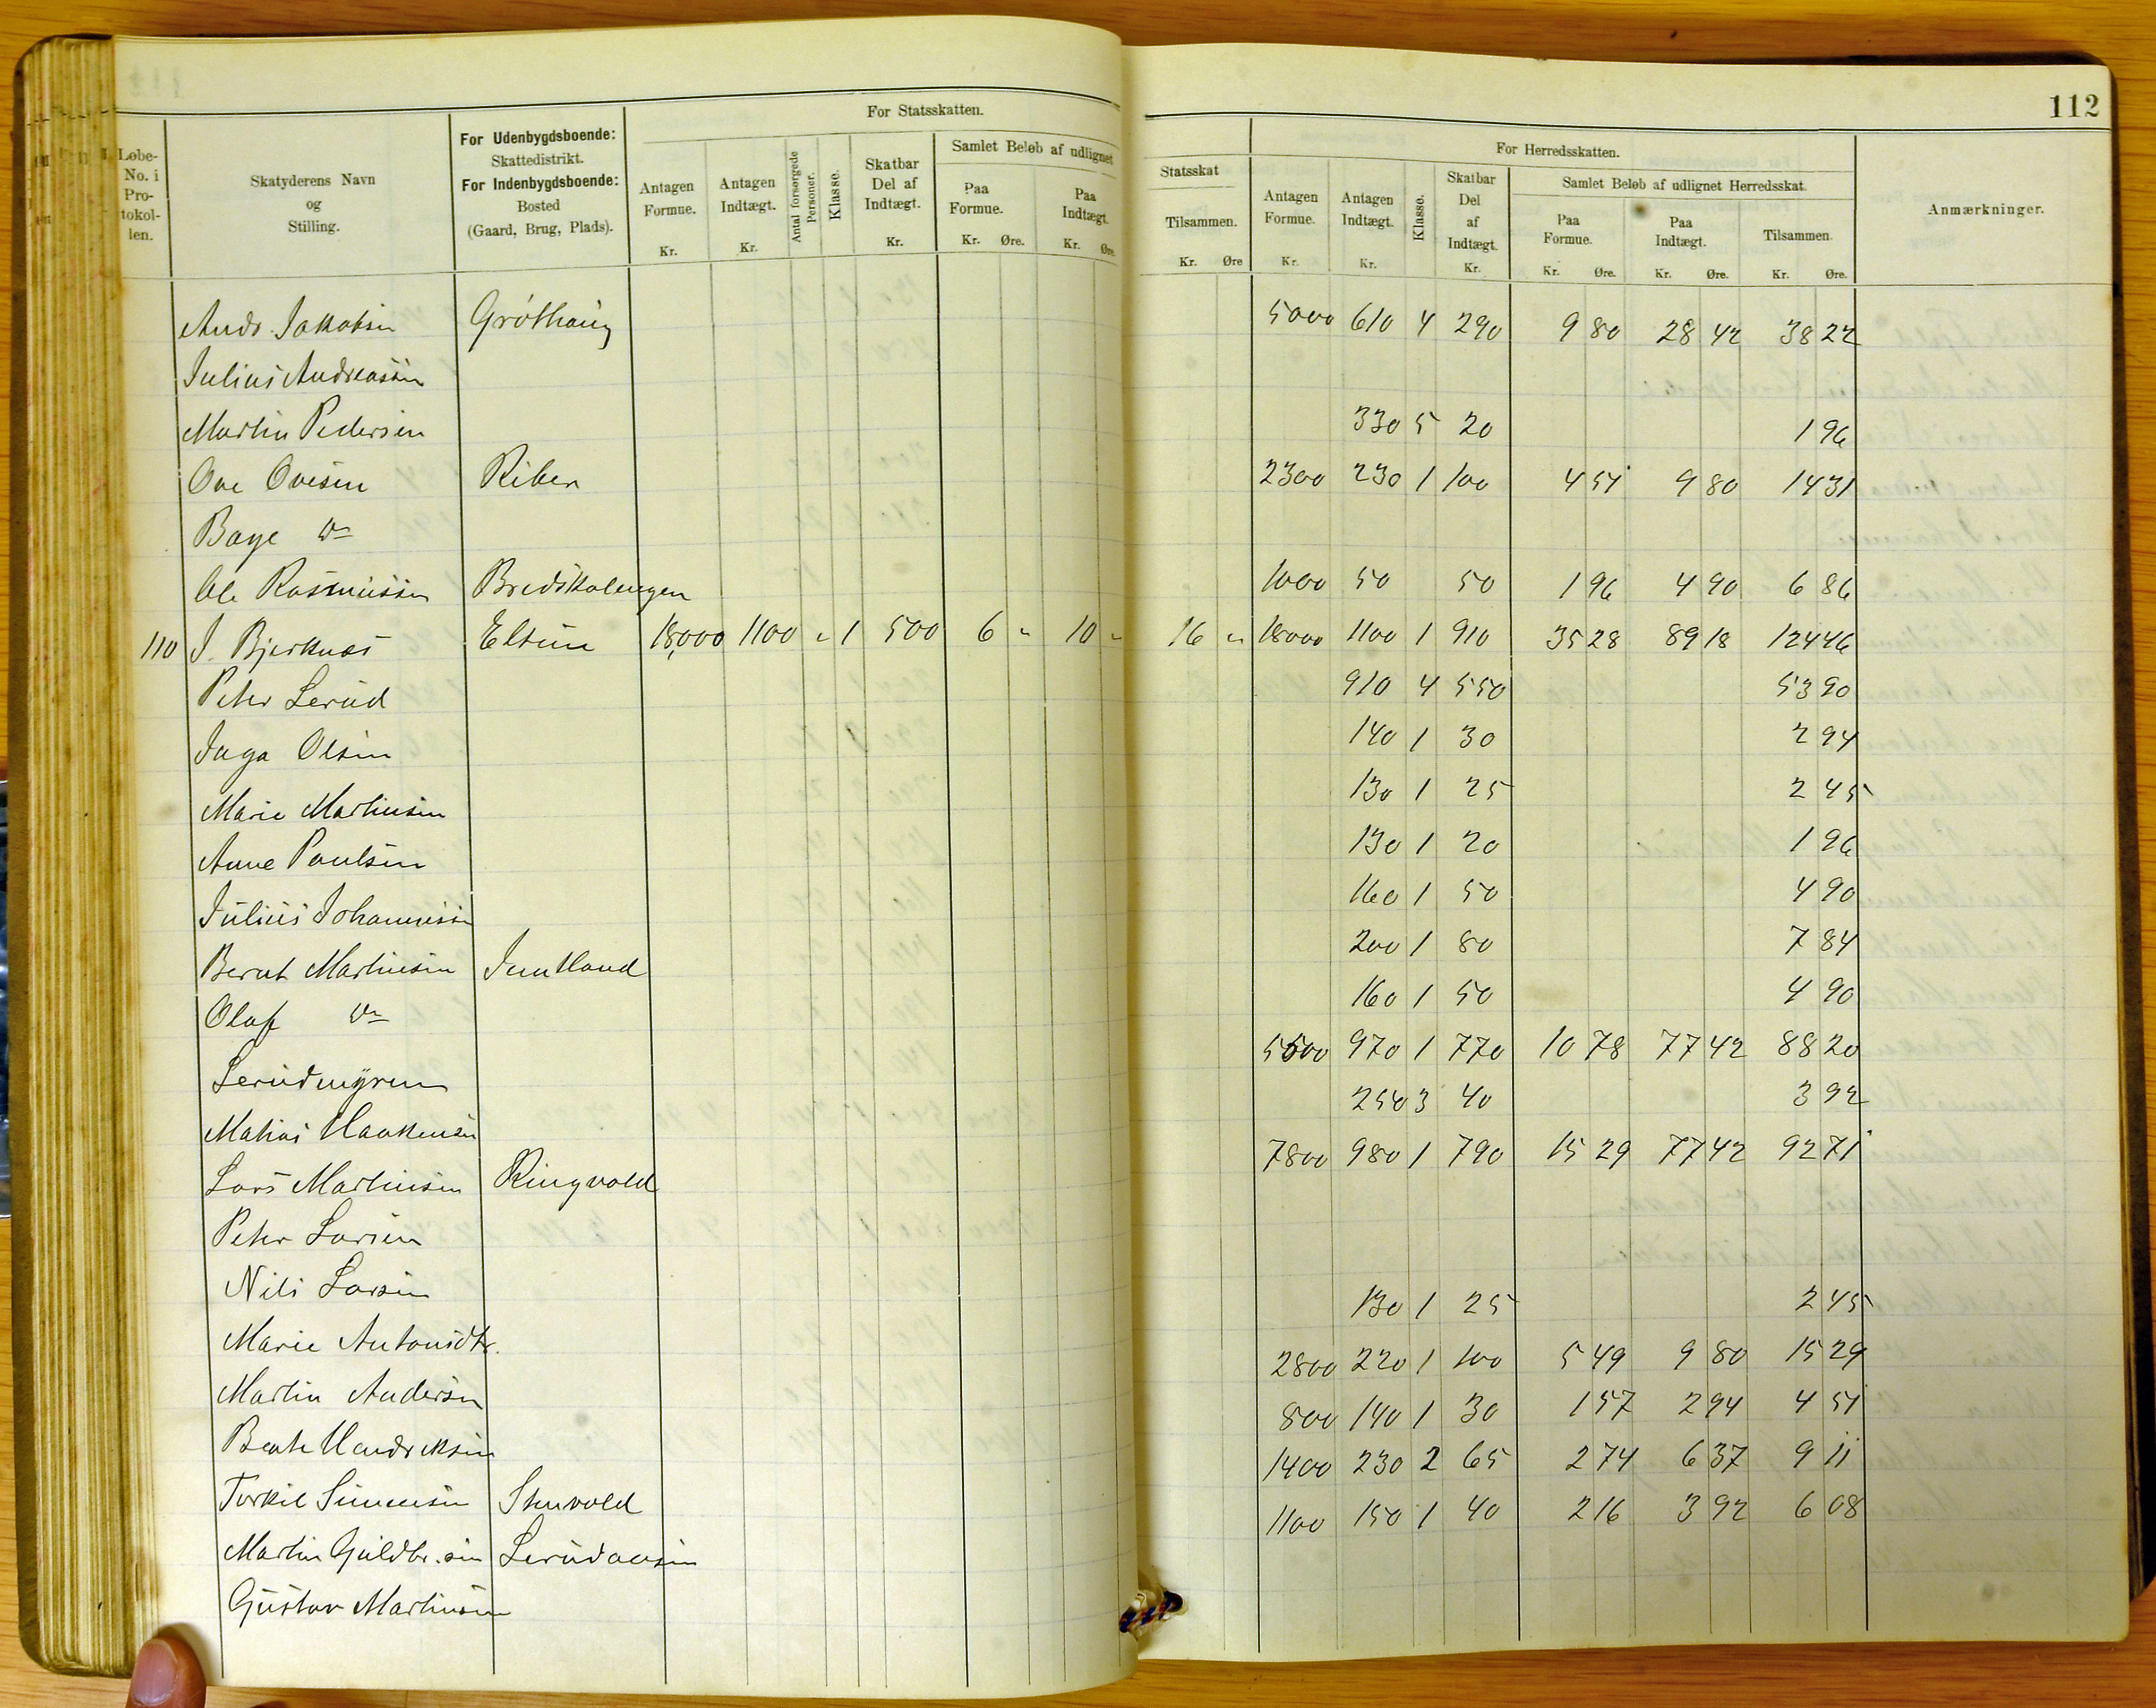 112
For Statsskatten.
For Herredsskatten.
Løbe-No. i Pro-tokol-len.
Skatyderens Navn og Stilling.
For Udenbygdsboende: Skattedistrikt. For Indenbygdsboende: Bosted (Gaard, Brug, Plads).
Antagen Formue. Kr.
Antagen Indtægt. Kr.
Antal forsørgede Personer.
Klasse.
Skatbar Del af Indtægt. Kr.
Samlet Beløb af udlignet Statsskat
Paa Formue. Kr. Øre.
Paa Indtægt. Kr. Øre.
Tilsammen. Kr. Øre
Antagen Formue. Kr.
Antagen Indtægt. Kr.
Klasse.
Skatbar Del af Indtægt. Kr.
Samlet Beløb af udlignet Herredsskat.
Paa Formue. Kr. Øre.
Paa Indtægt. Kr. Øre.
Tilsammen. Kr. Øre.
Anmærkninger.
Ands. Jakobsen Gröthaug 5000 610 4 290 9 80 28 42 38 22
Julius Andreassen
Martin Pedersen 330 5 20 1 96
Ove Ovesen Riber 2300 230 1 100 4 51 9 80 14 31
Baye Do
Ole Rasmussen Bredskalengen 1000 50 50 1 96 4 90 6 86
110 J. Bjerknæs Elstun 18,000 1100 " 1 500 6 " 10 " 16 " 18000 1100 1 910 35 28 89 18 124 46
Peter Lerud 910 4 550 53 90
Inga Olsen 140 1 30 2 94
Marie Martinsen 130 1 25 2 45
Anne Paulsen 130 1 20 1 96
Julius Johannessen 160 1 50 4 90
Bernt Martinsen Jemtland 200 1 80 7 84
Olaf Do 160 1 50 4 90
Lerudmyren 5500 970 1 770 10 78 77 42 88 20
Matias Haakensen 250 3 40 3 92
Lars Martinsen Ringvold 7800 980 1 790 15 29 77 42 92 71
Peter Larsen
Nils Larsen 130 1 25 2 45
Marie Antonsdtr. 2800 220 1 100 5 49 9 80 15 29
Martin Andersen 800 140 1 30 1 57 2 94 4 51
Bernt Hendriksen 1400 230 2 65 2 74 6 37 9 11
Torkil Simensen Stenvold 1100 150 1 40 2 16 3 92 6 08
Martin Guldbr.sen Lerudaasen
Gustav Martinsen